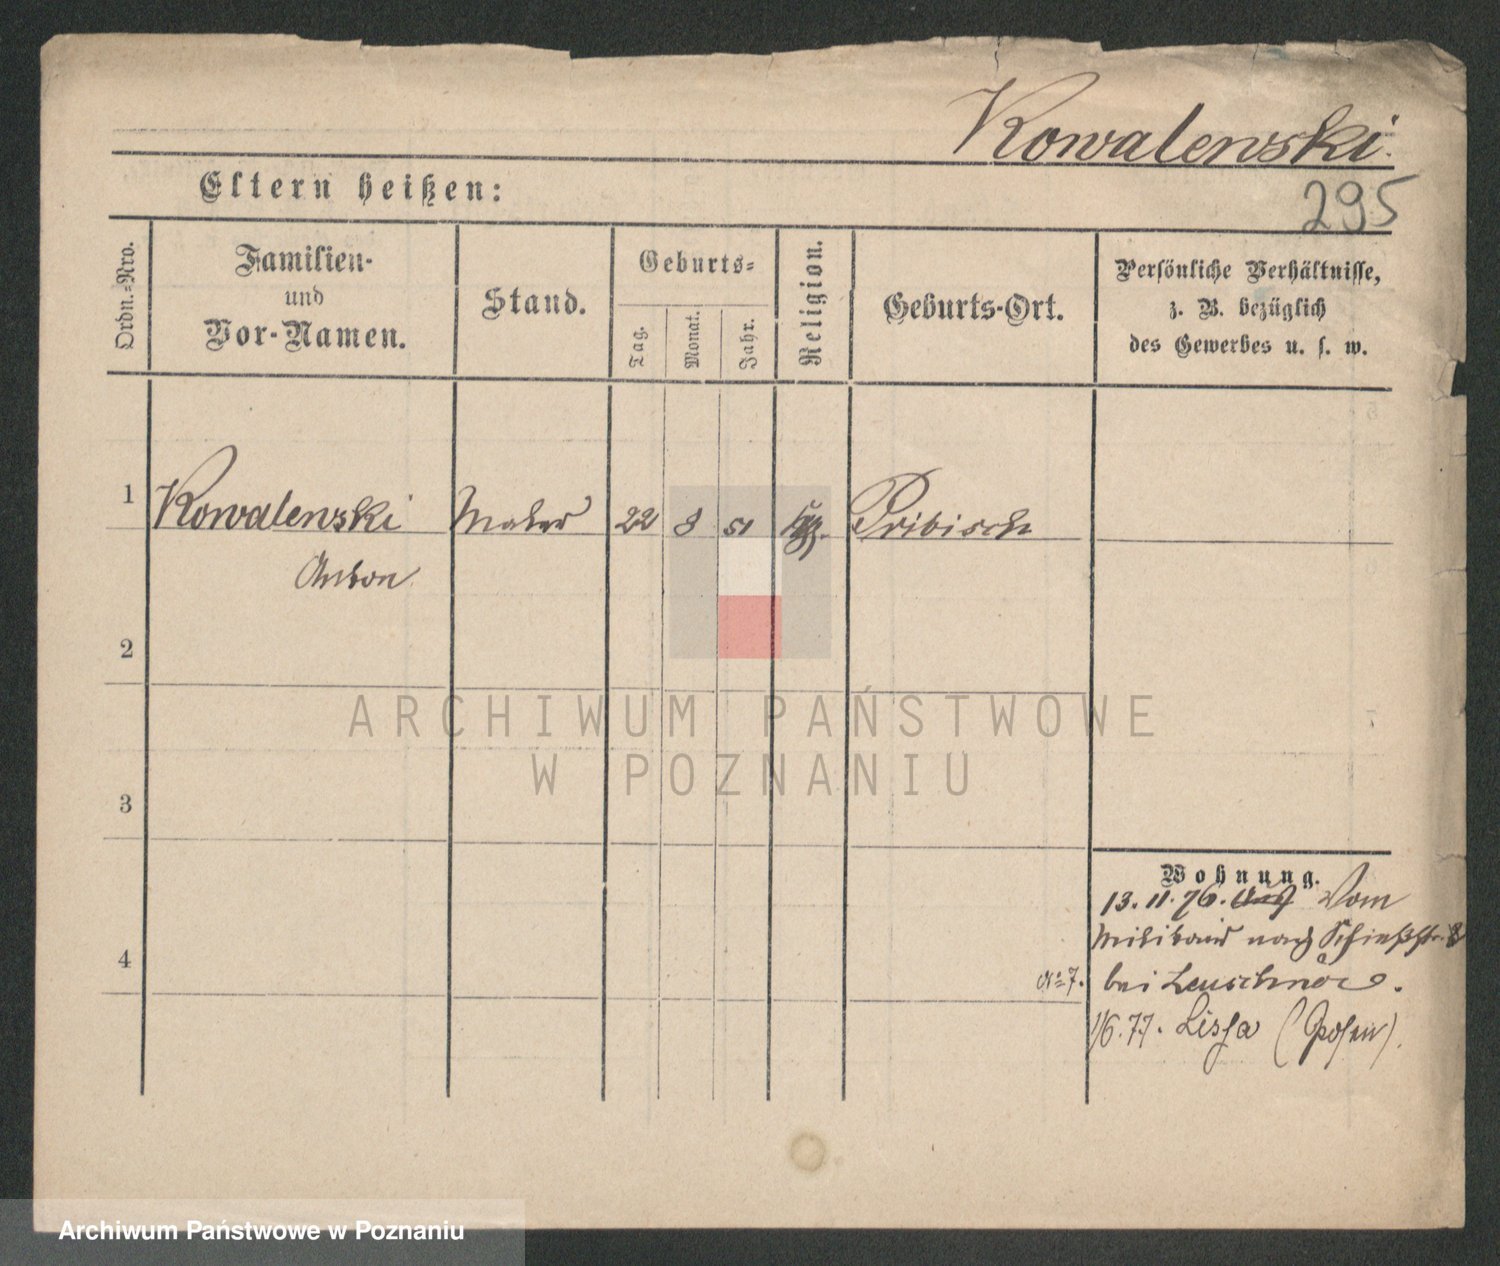 Kowalewski.
Eltern heißen:
295
Ordn.-Nro.
Familien-
und
Vor-Namen.
Stand.
Geburts-
Tag.
Monat.
Jahr.
Religion.
Geburts-Ort.
Persönliche Verhältnisse,
z. B. bezüglich
des Gewerbes u. s. w.
1 Kowalewski Maler 22 8 51 Pribisch
Anton
2
ARCHIWUM PAŃSTWOWE
W POZNANIU
3
Wohnung.
13. 11. 76. Vom
Militair nach Schießstr. 8
4
No 7. bei Leuschner.
1/6. 77. Lissa (Posen).
Archiwum Państwowe w Poznaniu